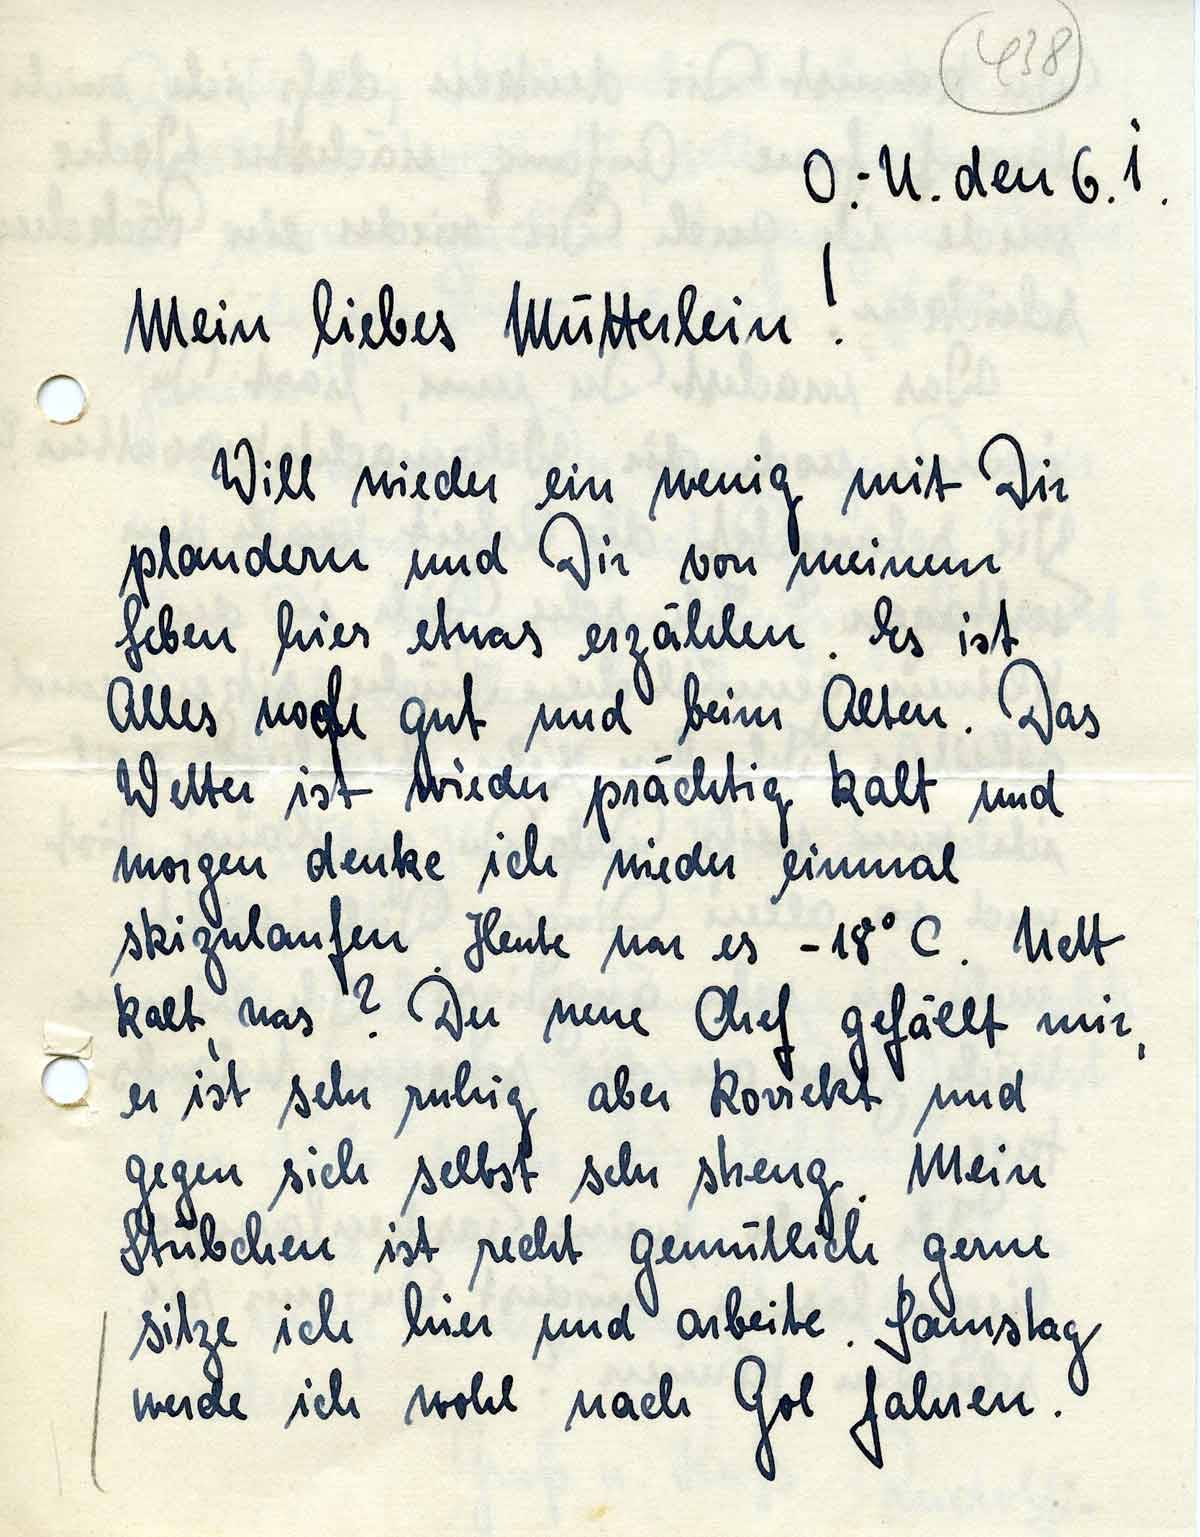 438
O.-U. den 6.1.
Mein liebes Mütterlein!
Will wieder ein wenig mit Dir
plaudern und Dir von meinem
Leben hier etwas erzählen. Es ist
Alles noch gut und beim Alten. Das
Wetter ist wieder prächtig kalt und
morgen denke ich wieder einmal
skizulaufen. Heute war es -18° C. Nett
kalt, was? Der neue Chef gefällt mir,
er ist sehr ruhig aber korrekt und
gegen sich selbst sehr streng. Mein
Stübchen ist recht gemütlich, gerne
sitze ich hier und arbeite. Samstag
werde ich wohl nach Gol fahren.